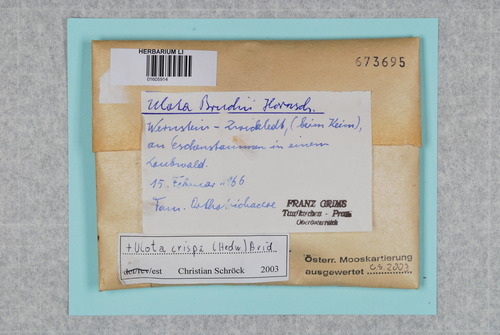 HERBARIUM LI
01605914
673695
Ulota Bruchii Hornsch.
Wernstein - Zwickledt, (beim Keim),
an Eschenstämmen in einem
Laubwald.
15. Februar 1966
Fam. Orthotrichaceae
FRANZ GRIMS
Taufkirchen - Pram
Oberösterreich
+ Ulota crispa (Hedw.) Brid.
det/rev/est Christian Schröck 2003
Österr. Mooskartierung
ausgewertet 03.2003